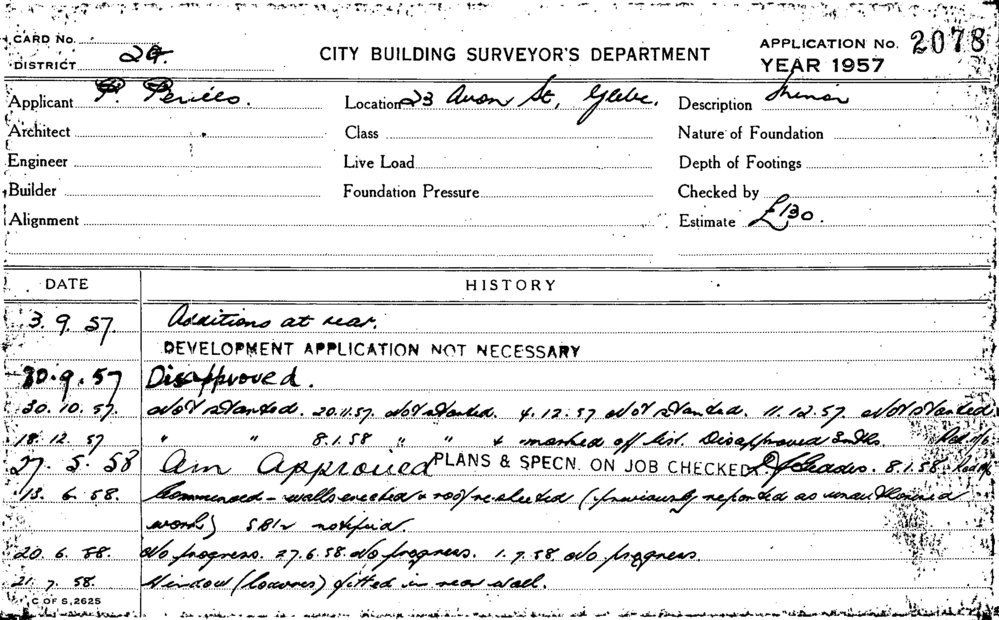 CARD No.
DISTRICT 29.
CITY BUILDING SURVEYOR'S DEPARTMENT
APPLICATION No. 2078
YEAR 1957
Applicant P.
Location 23 Avon St, Glebe.
Description Minor
Architect
Class
Nature of Foundation
Engineer
Live Load
Depth of Footings
Builder
Foundation Pressure
Checked by
Alignment
Estimate £130.
DATE HISTORY
3. 9. 57. Additions at rear.
DEVELOPMENT APPLICATION NOT NECESSARY
30.9.57 Disapproved.
30.10.57. Not started. 20.11.57. Not started. 4.12.57 Not started. 11.12.57. Not started
18.12.57 " " 8.1.58 " " & marked off list. Disapproved
27. 5. 58 Am Approved PLANS & SPECN. ON JOB CHECKED 8.1.58.
13. 6. 58. Commenced - walls erected & roof re-sheeted (previously reported as unauthorised
work) notified.
20. 6. 58. No progress. 27.6.58. No progress. 1.7.58 No progress.
21. 7. 58. Window (louvres) fitted in rear wall.
C OF S, 2625